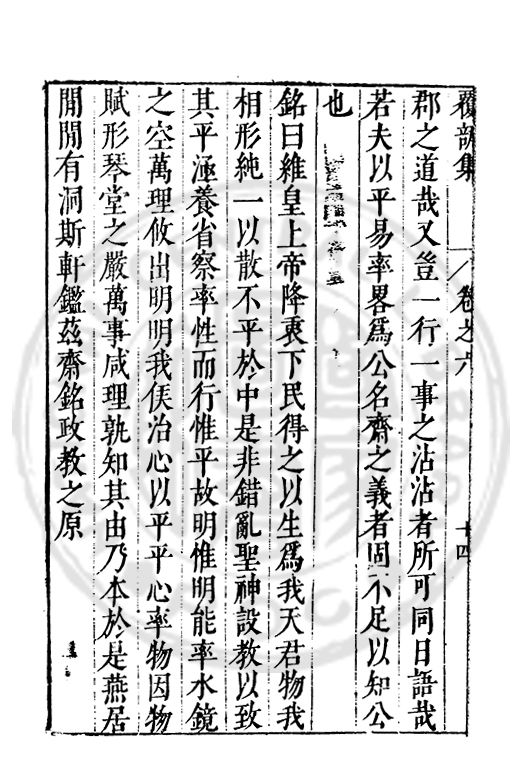 覆瓿集 卷之六 十四
郡之道哉又豈一行一事之沾沾者所可同日語哉
若夫以平易率畧爲公名齋之義者固不足以知公
也
銘曰維皇上帝降衷下民得之以生爲我天君物我
相形純一以散不平於中是非錯亂聖神設教以致
其平涵養省察率性而行惟平故明惟明能率水鏡
之空萬理攸出明明我侯治心以平平心率物因物
賦形琴堂之嚴萬事咸理孰知其由乃本於是燕居
閒閒有洞斯軒鑑茲齋銘政教之原